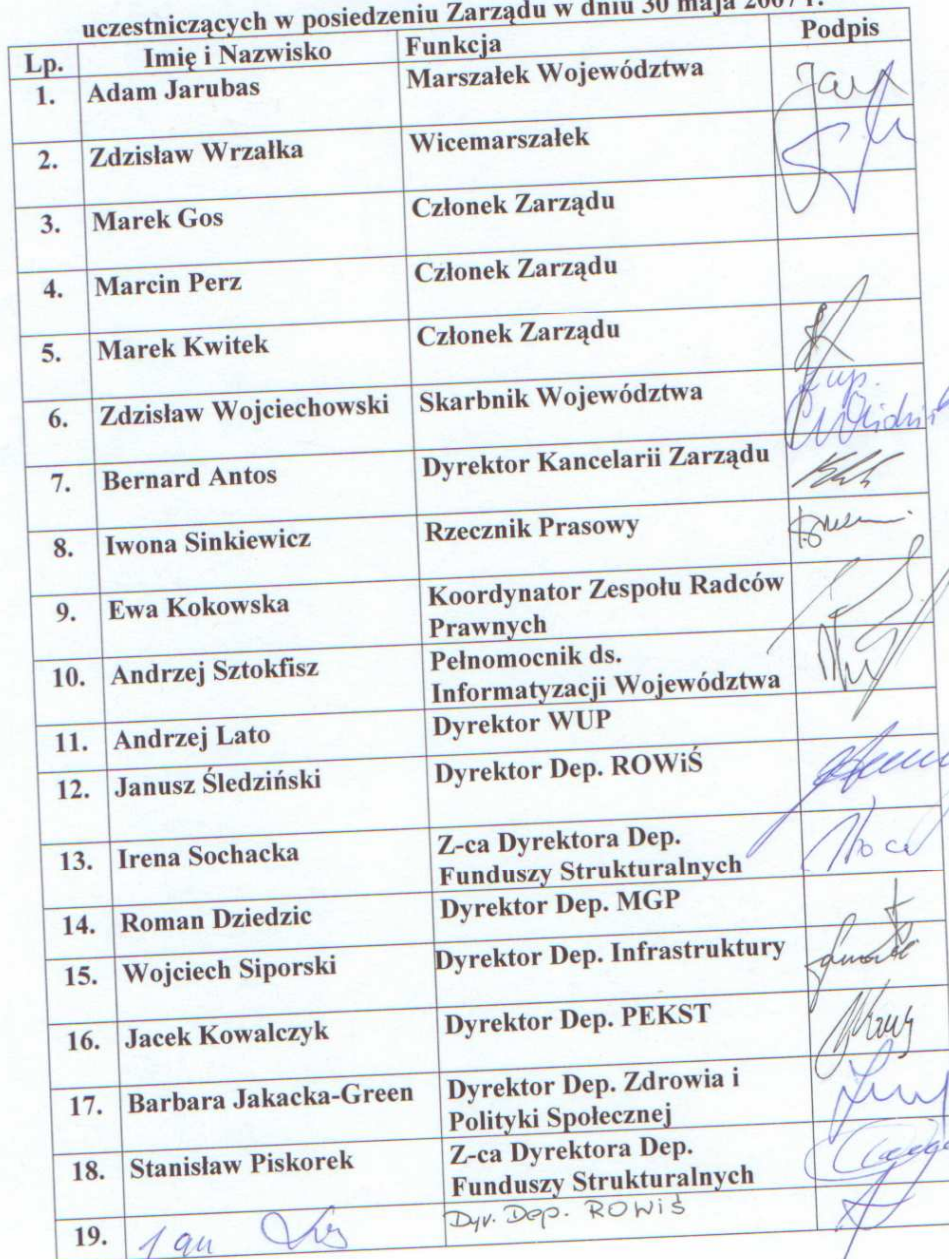 uczestniczących w posiedzeniu Zarządu w dniu 30 maja 2007 r.
Lp. Imię i Nazwisko Funkcja Podpis
1. Adam Jarubas Marszałek Województwa
2. Zdzisław Wrzałka Wicemarszałek
3. Marek Gos Członek Zarządu
4. Marcin Perz Członek Zarządu
5. Marek Kwitek Członek Zarządu
6. Zdzisław Wojciechowski Skarbnik Województwa
7. Bernard Antos Dyrektor Kancelarii Zarządu
8. Iwona Sinkiewicz Rzecznik Prasowy
9. Ewa Kokowska Koordynator Zespołu Radców
Prawnych
10. Andrzej Sztokfisz Pełnomocnik ds.
Informatyzacji Województwa
11. Andrzej Lato Dyrektor WUP
12. Janusz Śledziński Dyrektor Dep. ROWiŚ
13. Irena Sochacka Z-ca Dyrektora Dep.
Funduszy Strukturalnych
14. Roman Dziedzic Dyrektor Dep. MGP
15. Wojciech Siporski Dyrektor Dep. Infrastruktury
16. Jacek Kowalczyk Dyrektor Dep. PEKST
17. Barbara Jakacka-Green Dyrektor Dep. Zdrowia i
Polityki Społecznej
18. Stanisław Piskorek Z-ca Dyrektora Dep.
Funduszy Strukturalnych
19. Jan Dyr. Dep. ROWiŚ